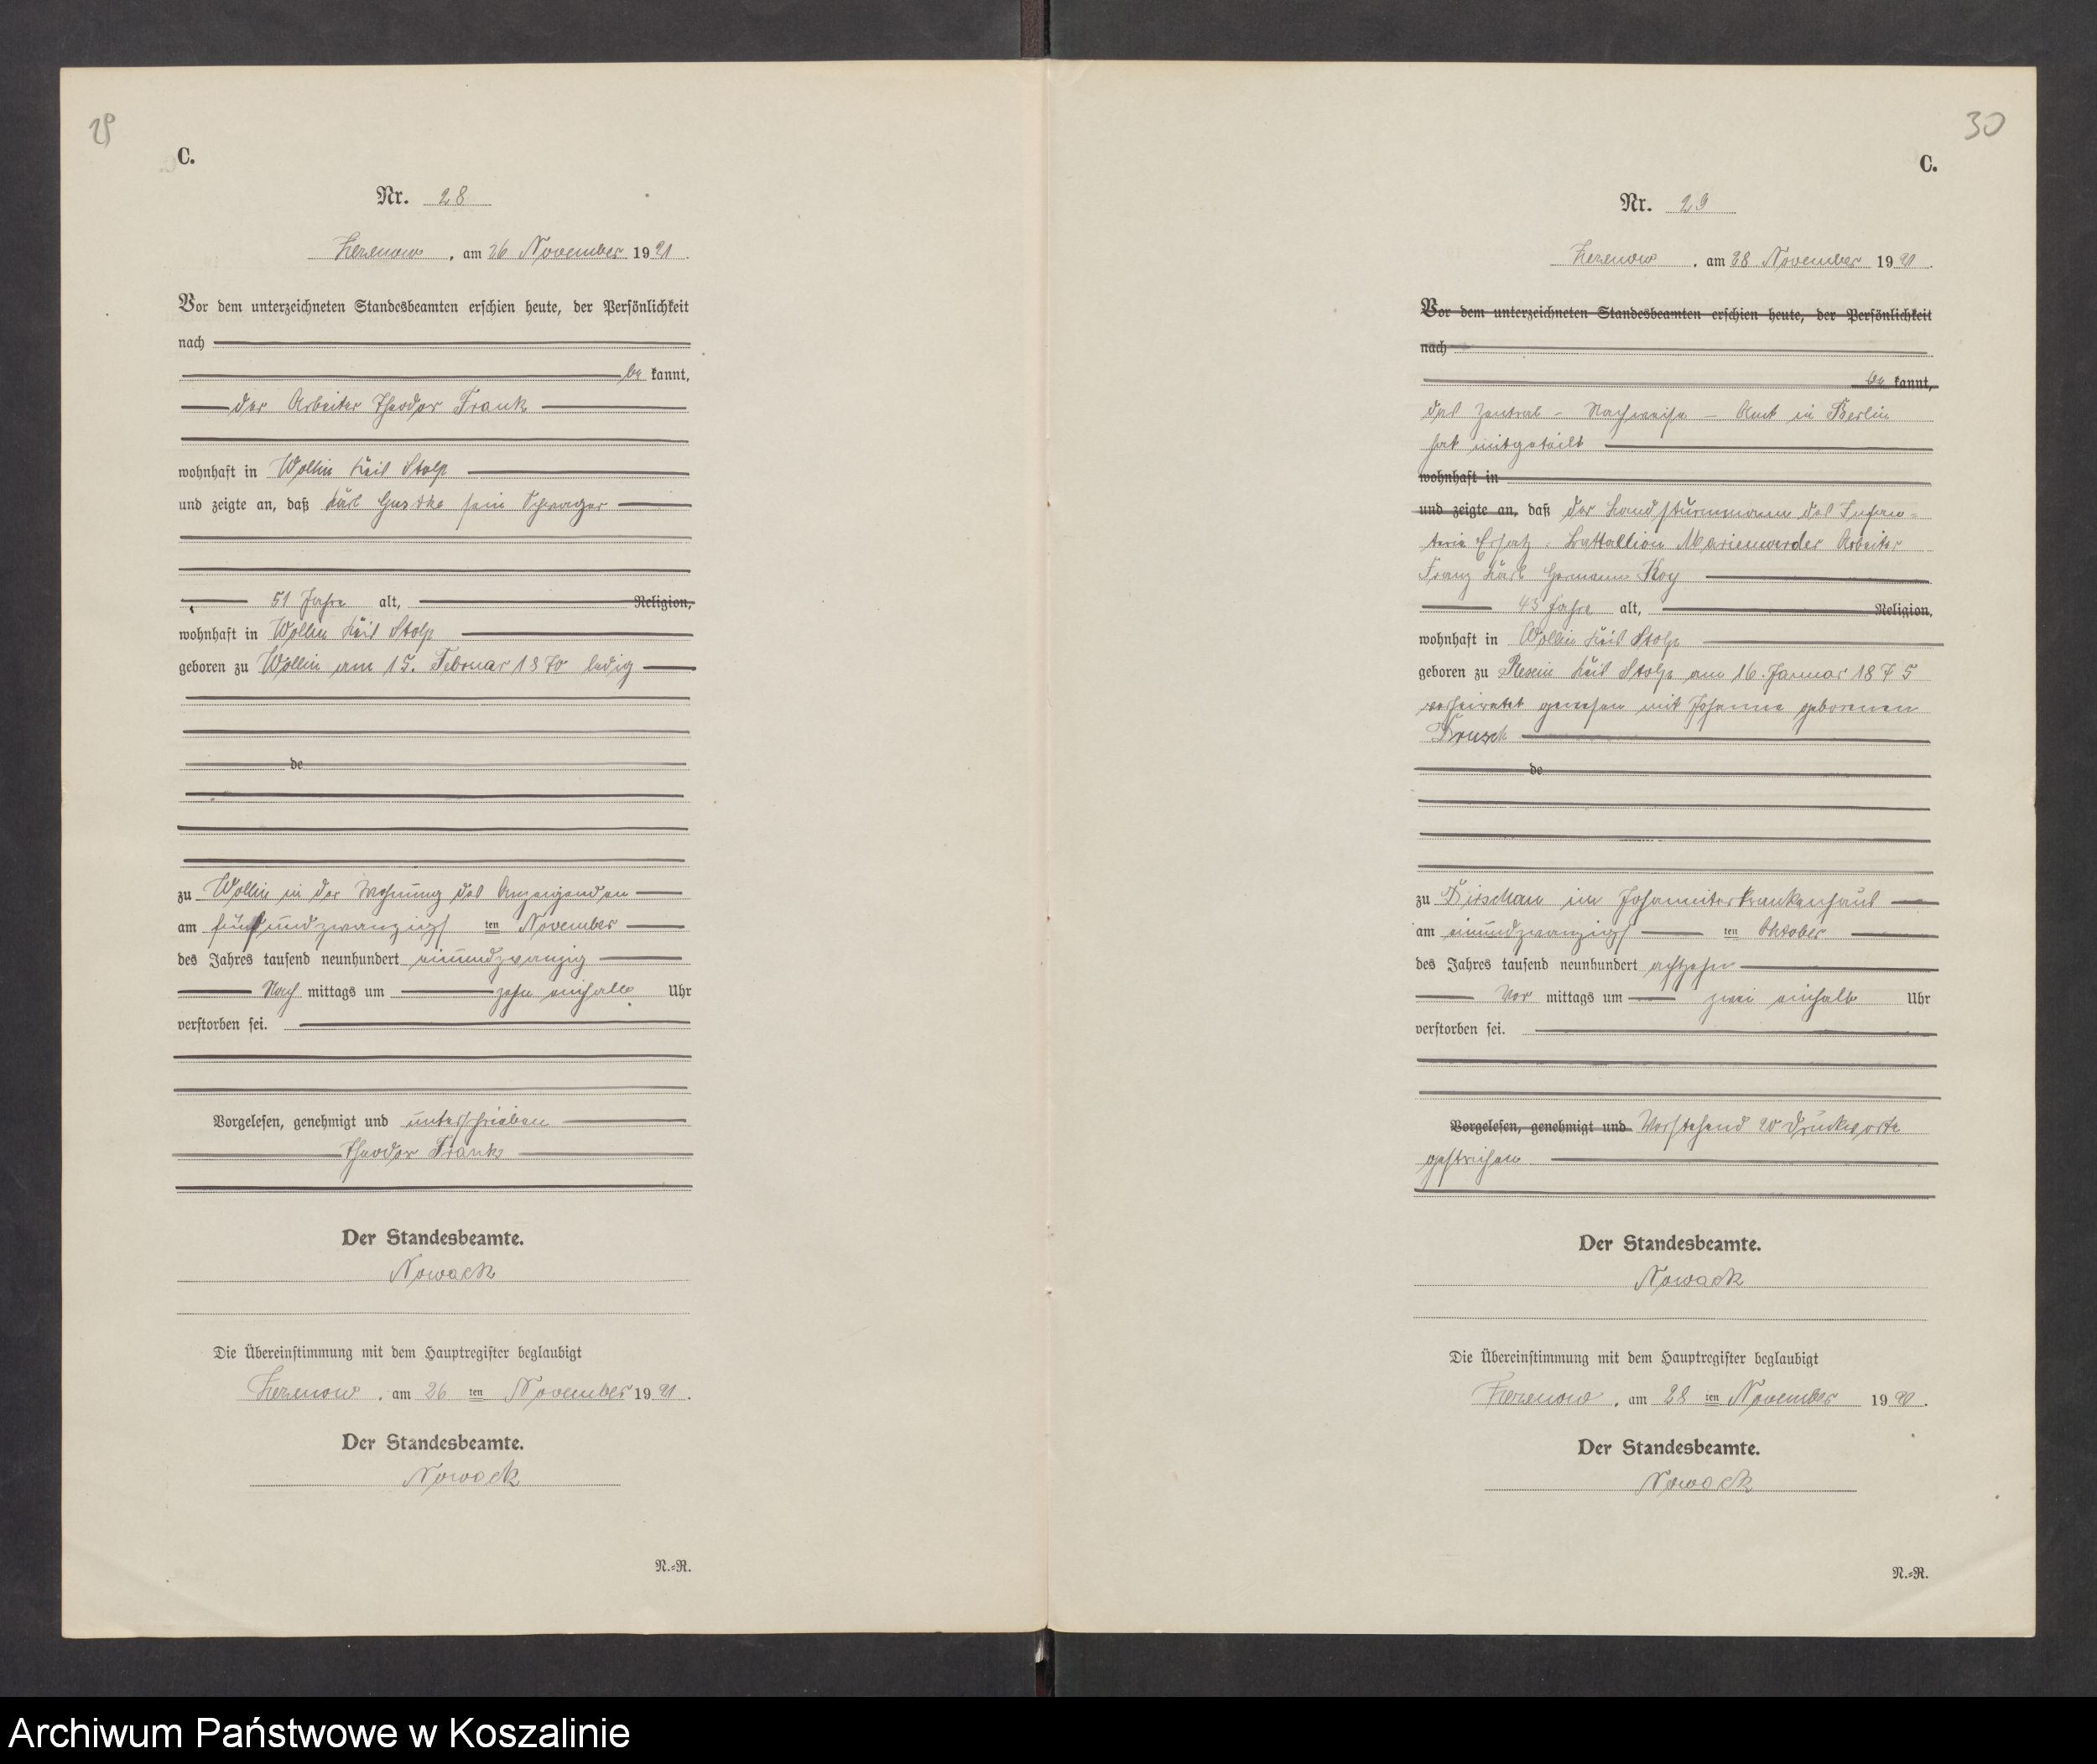 29
C.
Nr. 28
Zezenow, am 26 November 1921.
Vor dem unterzeichneten Standesbeamten erschien heute, der Persönlichkeit
nach
be kannt,
der Arbeiter Theodor Frank
wohnhaft in Wollin Kreis Stolp
und zeigte an, daß Karl Gustke sein Schwager
51 Jahre alt, Religion,
wohnhaft in Wollin Kreis Stolp
geboren zu Wollin am 15. Februar 1870 ledig
de
zu Wollin in der Wohnung des Anzeigenden
am fünfundzwanzigsten November
des Jahres tausend neunhundert einundzwanzig
Nach mittags um zehn einhalb Uhr
verstorben sei.
Vorgelesen, genehmigt und unterschrieben
Theodor Frank
Der Standesbeamte.
Nowack
Die Übereinstimmung mit dem Hauptregister beglaubigt
Zezenow, am 26 ten November 1921.
Der Standesbeamte.
Nowack
N.=R.
30
C.
Nr. 29
Zezenow, am 28 November 1921.
Vor dem unterzeichneten Standesbeamten erschien heute, der Persönlichkeit
nach
be kannt,
das Zentral - Nachweise - Amt in Berlin
hat mitgeteilt
wohnhaft in
und zeigte an, daß der Landsturmmann des Infan=
terie Ersatz - Battallion Marienwerder Arbeiter
Franz Karl Hermann Koy
43 Jahre alt, Religion,
wohnhaft in Wollin Kreis Stolp
geboren zu Kreis Stolp am 16. Januar 1875
verheiratet gewesen mit Johanna geborenen
de
zu Dirschau im Johanniterkrankenhaus
am einundzwanzigsten Oktober
des Jahres tausend neunhundert achtzehn
Vor mittags um zwei einhalb Uhr
verstorben sei.
Vorgelesen, genehmigt und Vorstehend 20 Druckworte
gestrichen
Der Standesbeamte.
Nowack
Die Übereinstimmung mit dem Hauptregister beglaubigt
Zezenow, am 28 ten November 1921.
Der Standesbeamte.
Nowack
N.=R.
Archiwum Państwowe w Koszalinie